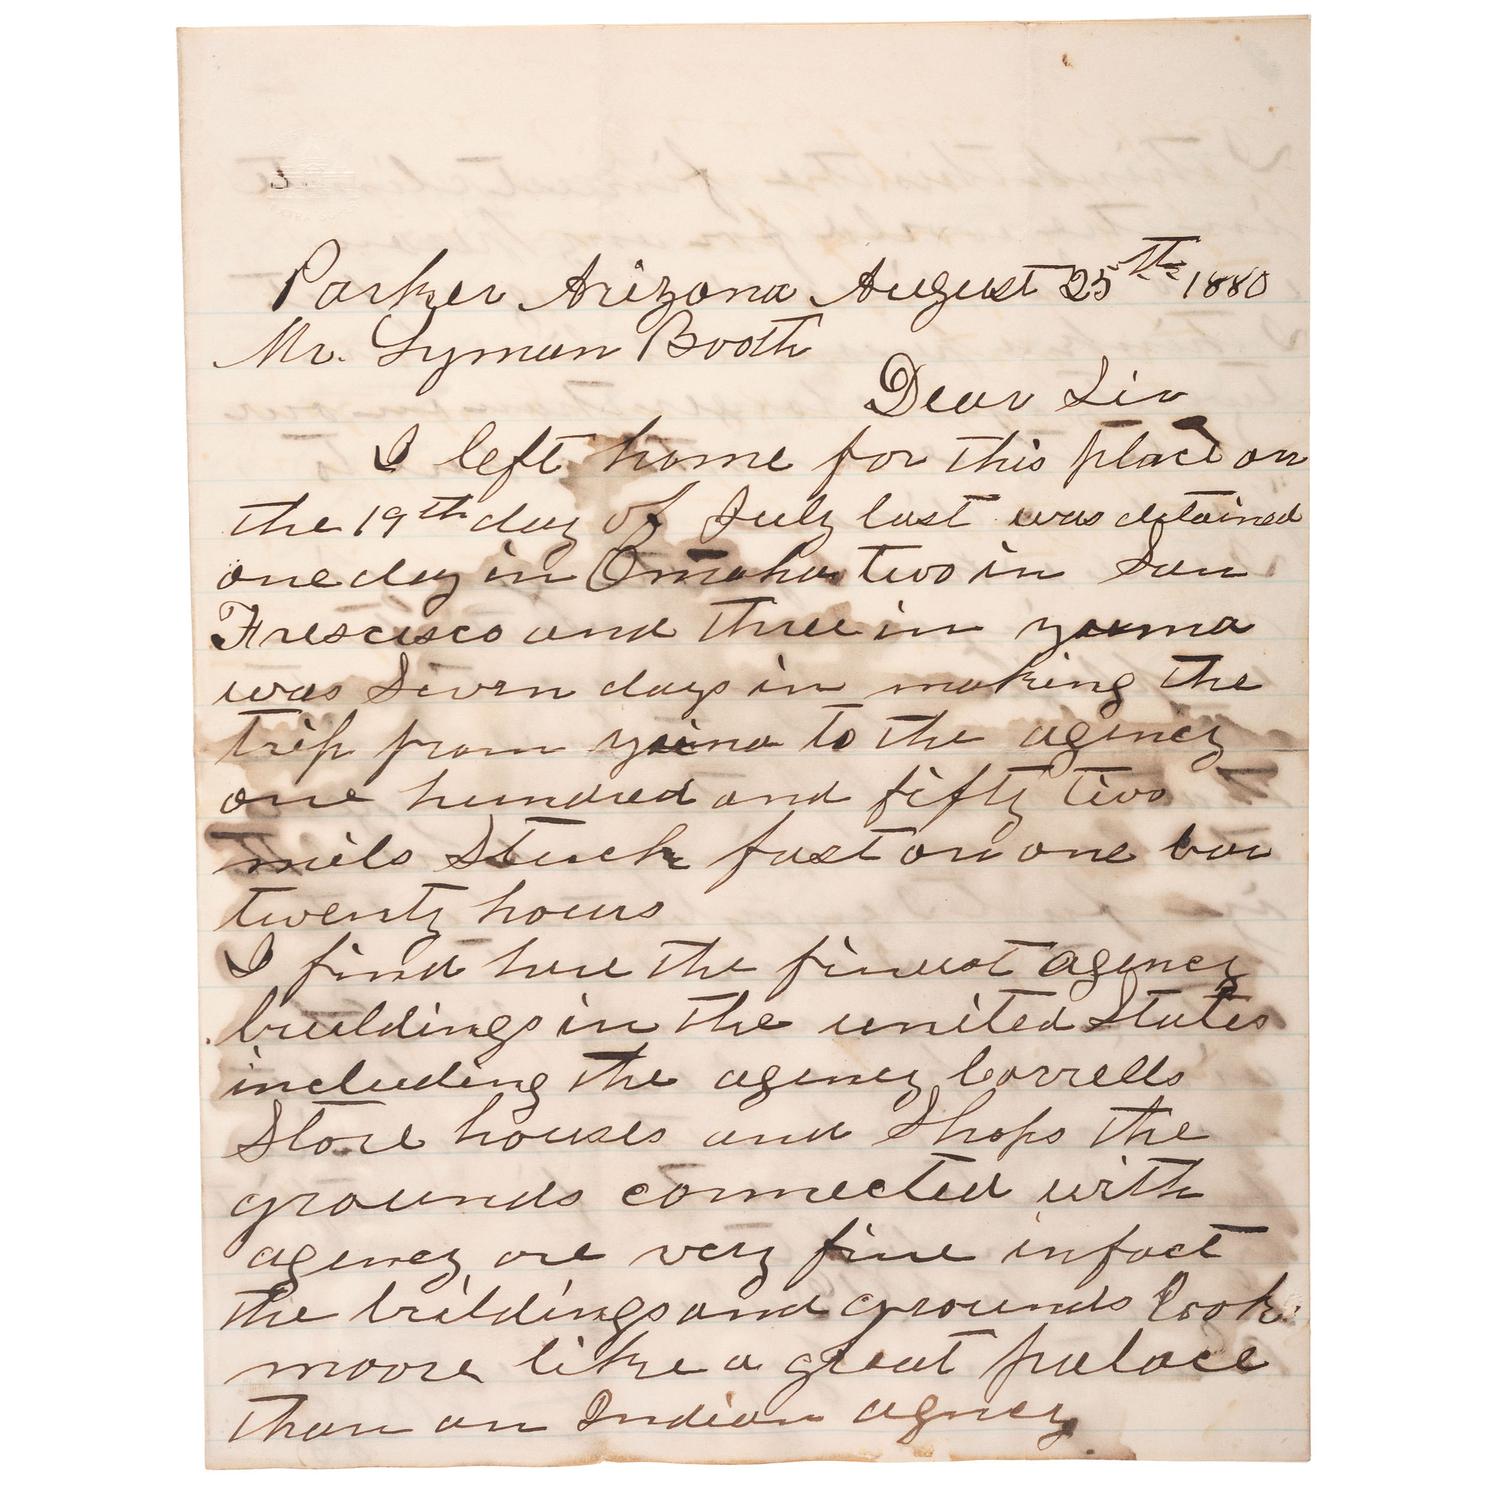 Parker Arizona August 25th 1880
Mr. Lyman Booth
Dear Sir
I left home for this place on
the 19th day of July last was detained
one day in Omaha two in San
Frescisco and three in yuma
was Seven days in making the
trip from yuma to the agency
one hundred and fifty two
miels Stuck fast on one bar
twenty hours
I find here the finest agency
buildings in the united States
including the agency Corrells
Store houses and Shops the
grounds connected with
agency are very fine in fact
the brildings and grounds look
moore like a great palace
than an Indian agncy